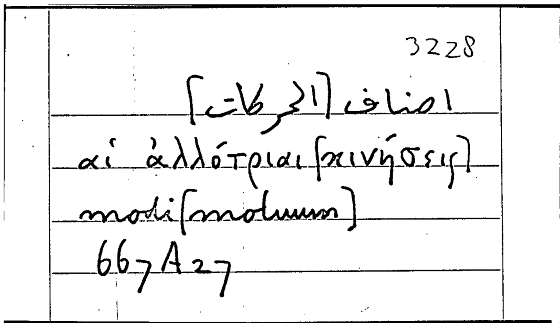 3228
اصناف [الحركات]
αἱ ἀλλότριαι [κινήσεις]
modi [motuum]
667 A 27